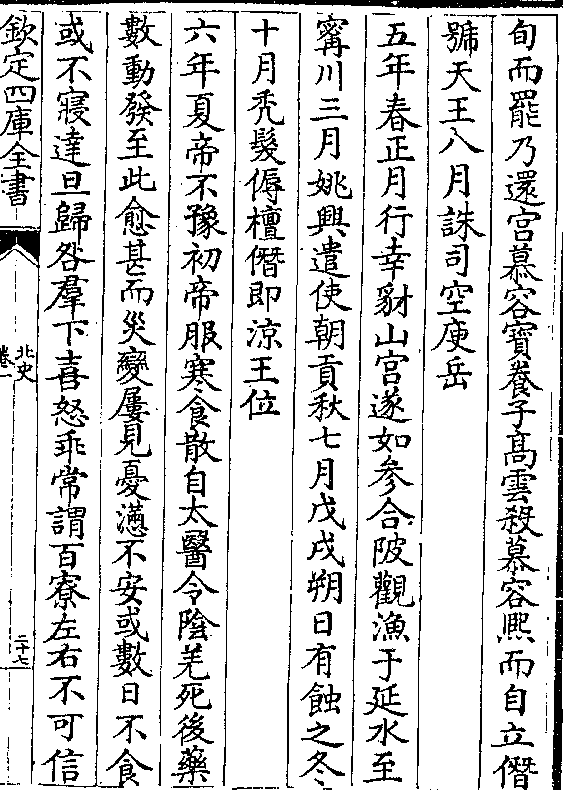 旬而罷乃還宮慕容寶養子髙雲殺慕容熙而自立僭
號天王八月誅司空庾岳
五年春正月行幸豺山宮遂如参合陂觀漁于延水至
寗川三月姚興遣使朝貢秋七月戊戌朔日有蝕之冬
十月秃髮傉檀僭即涼王位
六年夏帝不豫初帝服寒食散自太醫令陰羌死後藥
數動發至此愈甚而災變屢見憂懣不安或數日不食
或不寢達旦歸咎羣下喜怒乖常謂百寮左右不可信
欽定四庫全書
北史
卷一
二十七